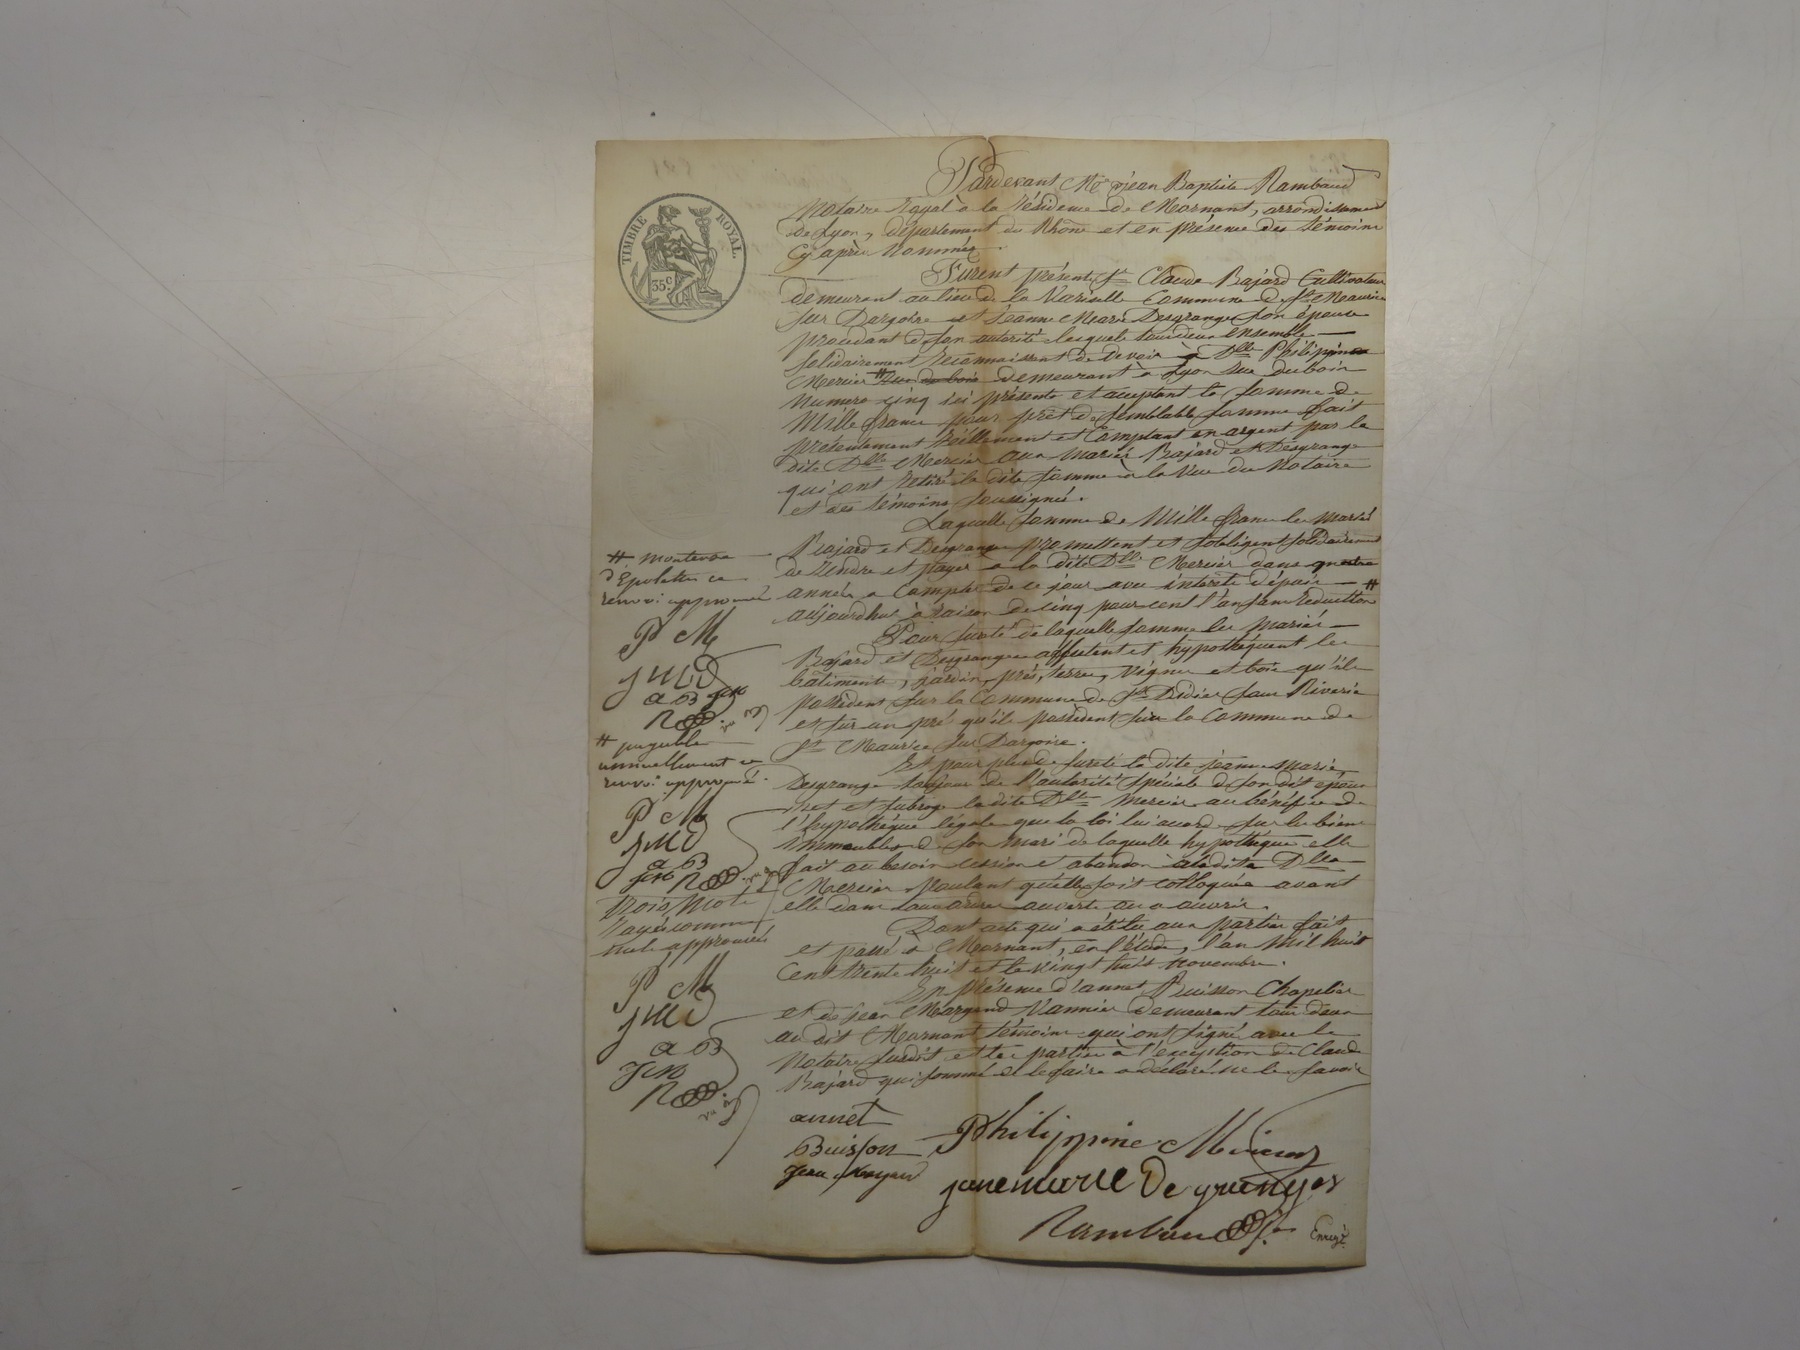 TIMBRE ROYAL
35 c
Pardevant Me jean Baptiste Rambaud
Notaire Royal à la résidence de Mornant, arrondissement
de Lyon, département du Rhône et en présence des témoins
Cy après Nommés.
Furent présents Sr Claude Bajard Cultivateur
demeurant au lieu de la Commune de St Maurice
sur Dargoire et jeanne Marie Desgrange son épouse
procédant de son autorité lesquels tous deux ensemble
solidairement reconnaissent de devoir à Dlle Philippine
Mercier # rue du bois demeurant à Lyon rue Dubois
numero cinq ici présente et acceptant la somme de
Mille francs pour prêt de semblable somme fait
présentement réellement et Comptant en argent par la
dite Dlle Mercier aux mariés Bajard et Desgrange
qui ont retiré la dite somme à la Vue du Notaire
et des témoins soussignés.
Laquelle somme de Mille francs les mariés
Bajard et Desgrange promettent et s'obligent solidairement
de rendre et payer à la dite Dlle Mercier dans quatre
années à Compter de ce jour avec intérêts dépuis
aujourdhui à raison de cinq pour cent l'an sans réduction #
Pour sureté de laquelle somme les mariés
Bajard et Desgrange affectent et hypothéquent les
bâtiments, jardin, prés, terres, vignes et bois qu'ils
possèdent sur la Commune de St Didier sous Riverie
et sur un pré qu'ils possèdent sur la Commune de
St Maurice sur Dargoire.
Et pour plus de sureté la dite jeanne marie
Desgrange toujours de l'autorité spéciale de son dit époux
met et subroge la dite Dlle Mercier au bénéfice de
l'hypothèque légale que la loi lui accorde sur les biens
immeubles de son mari de laquelle hypothèque elle
fait au besoin cession et abandon à la dite Dlle
Mercier Voulant qu'elle soit colloquée avant
elle dans tous ordres ouverts ou à ouvrir.
Dont acte qui a été lu aux parties fait
et passé à Mornant, en l'étude, l'an Mil huit
Cent trente huit et le vingt huit novembre.
En présence d'annet Buisson Chapelier
et de jean Margand Vannier demeurant tous deux
au dit Mornant témoins qui ont signé avec le
Notaire susdit et les parties à l'exception de Claude
Bajard qui sommé de le faire a déclaré ne le savoir
# monteuse
d'Epolettes ce
renvoi approuvé
P M
JMD
a B
R
# payable
annuellement ce
renvoi approuvé.
P M
JMD
a B
R
trois mots
rayés comme
nuls approuvés
P M
JMD
a B
R
annet
Buisson
Philippine Mercier
jean
janemarie De granges
Rambaud
Enregé